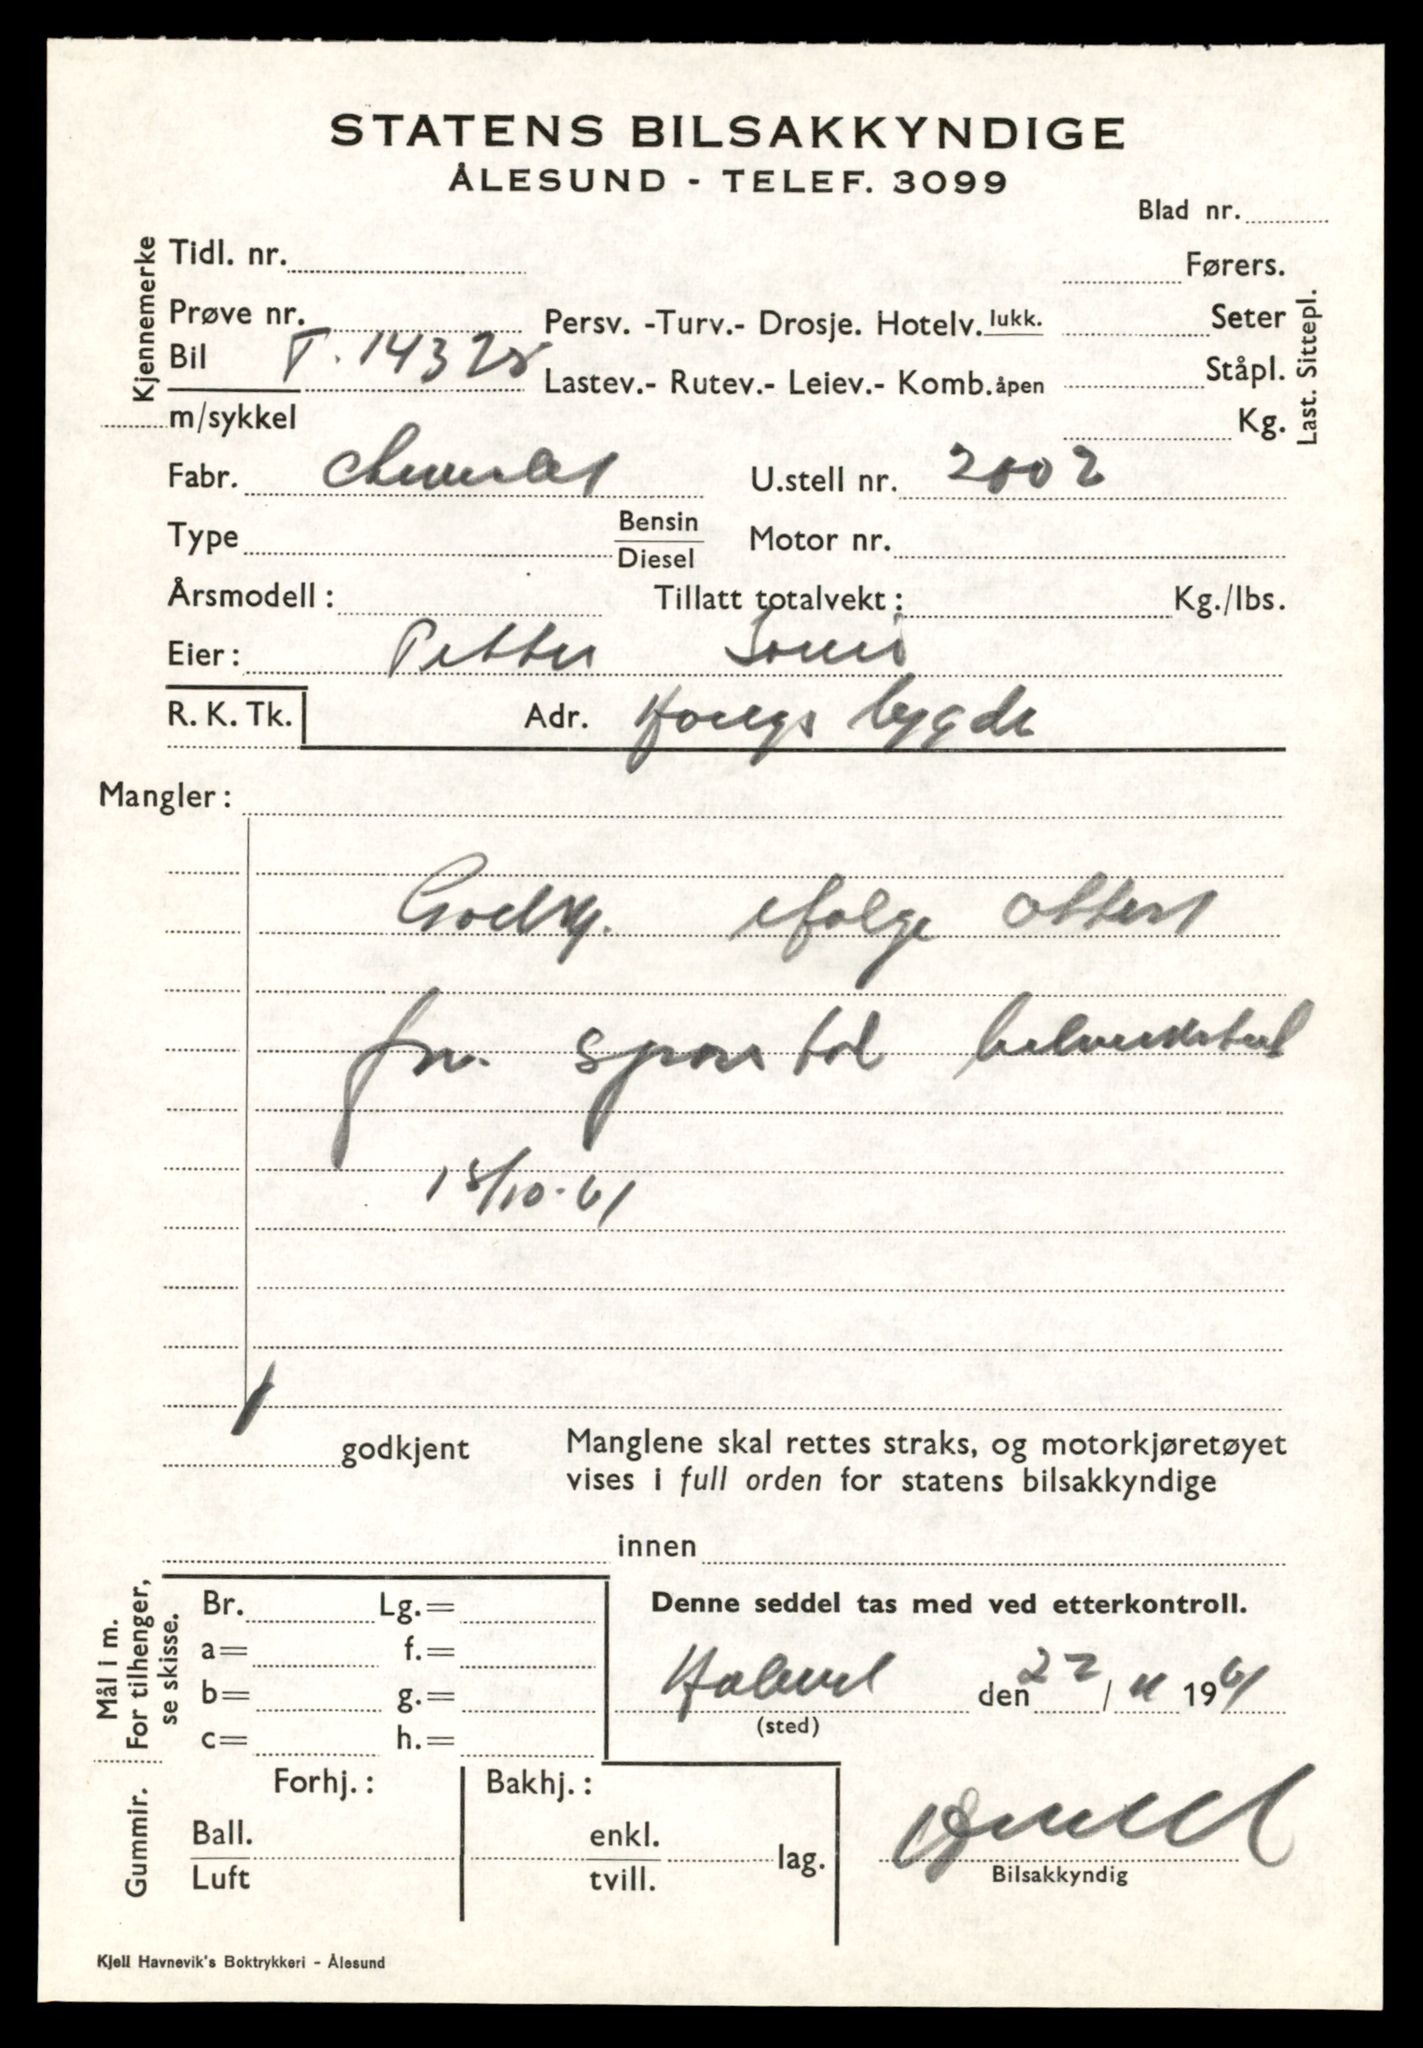 STATENS BILSAKKYNDIGE
ÅLESUND - TELEF. 3099
Blad nr.
Kjennemerke
Tidl. nr.
Førers.
Prøve nr.
Persv. -Turv.- Drosje. Hotelv. lukk.
Seter
Bil T. 14328
Lastev.- Rutev.- Leiev.- Komb. åpen
Ståpl.
m/sykkel
Kg.
Last. Sittepl.
Fabr. Chevrolet
U.stell nr. 2002
Type
Bensin
Diesel
Motor nr.
Årsmodell :
Tillatt totalvekt :
Kg./lbs.
Eier : Petter
R. K. Tk.
Adr. bygde
Mangler :
Godkj. ifølge attest
fra bilverksted
18/10-61
godkjent
Manglene skal rettes straks, og motorkjøretøyet
vises i full orden for statens bilsakkyndige
innen
Mål i m.
For tilhenger,
se skisse.
Br. Lg.=
a= f.=
b= g.=
c= h.=
Denne seddel tas med ved etterkontroll.
den 22 / 11 1961
(sted)
Gummir.
Forhj. :
Bakhj. :
Ball.
Luft
enkl.
tvill.
lag.
Bilsakkyndig
Kjell Havnevik's Boktrykkeri - Ålesund